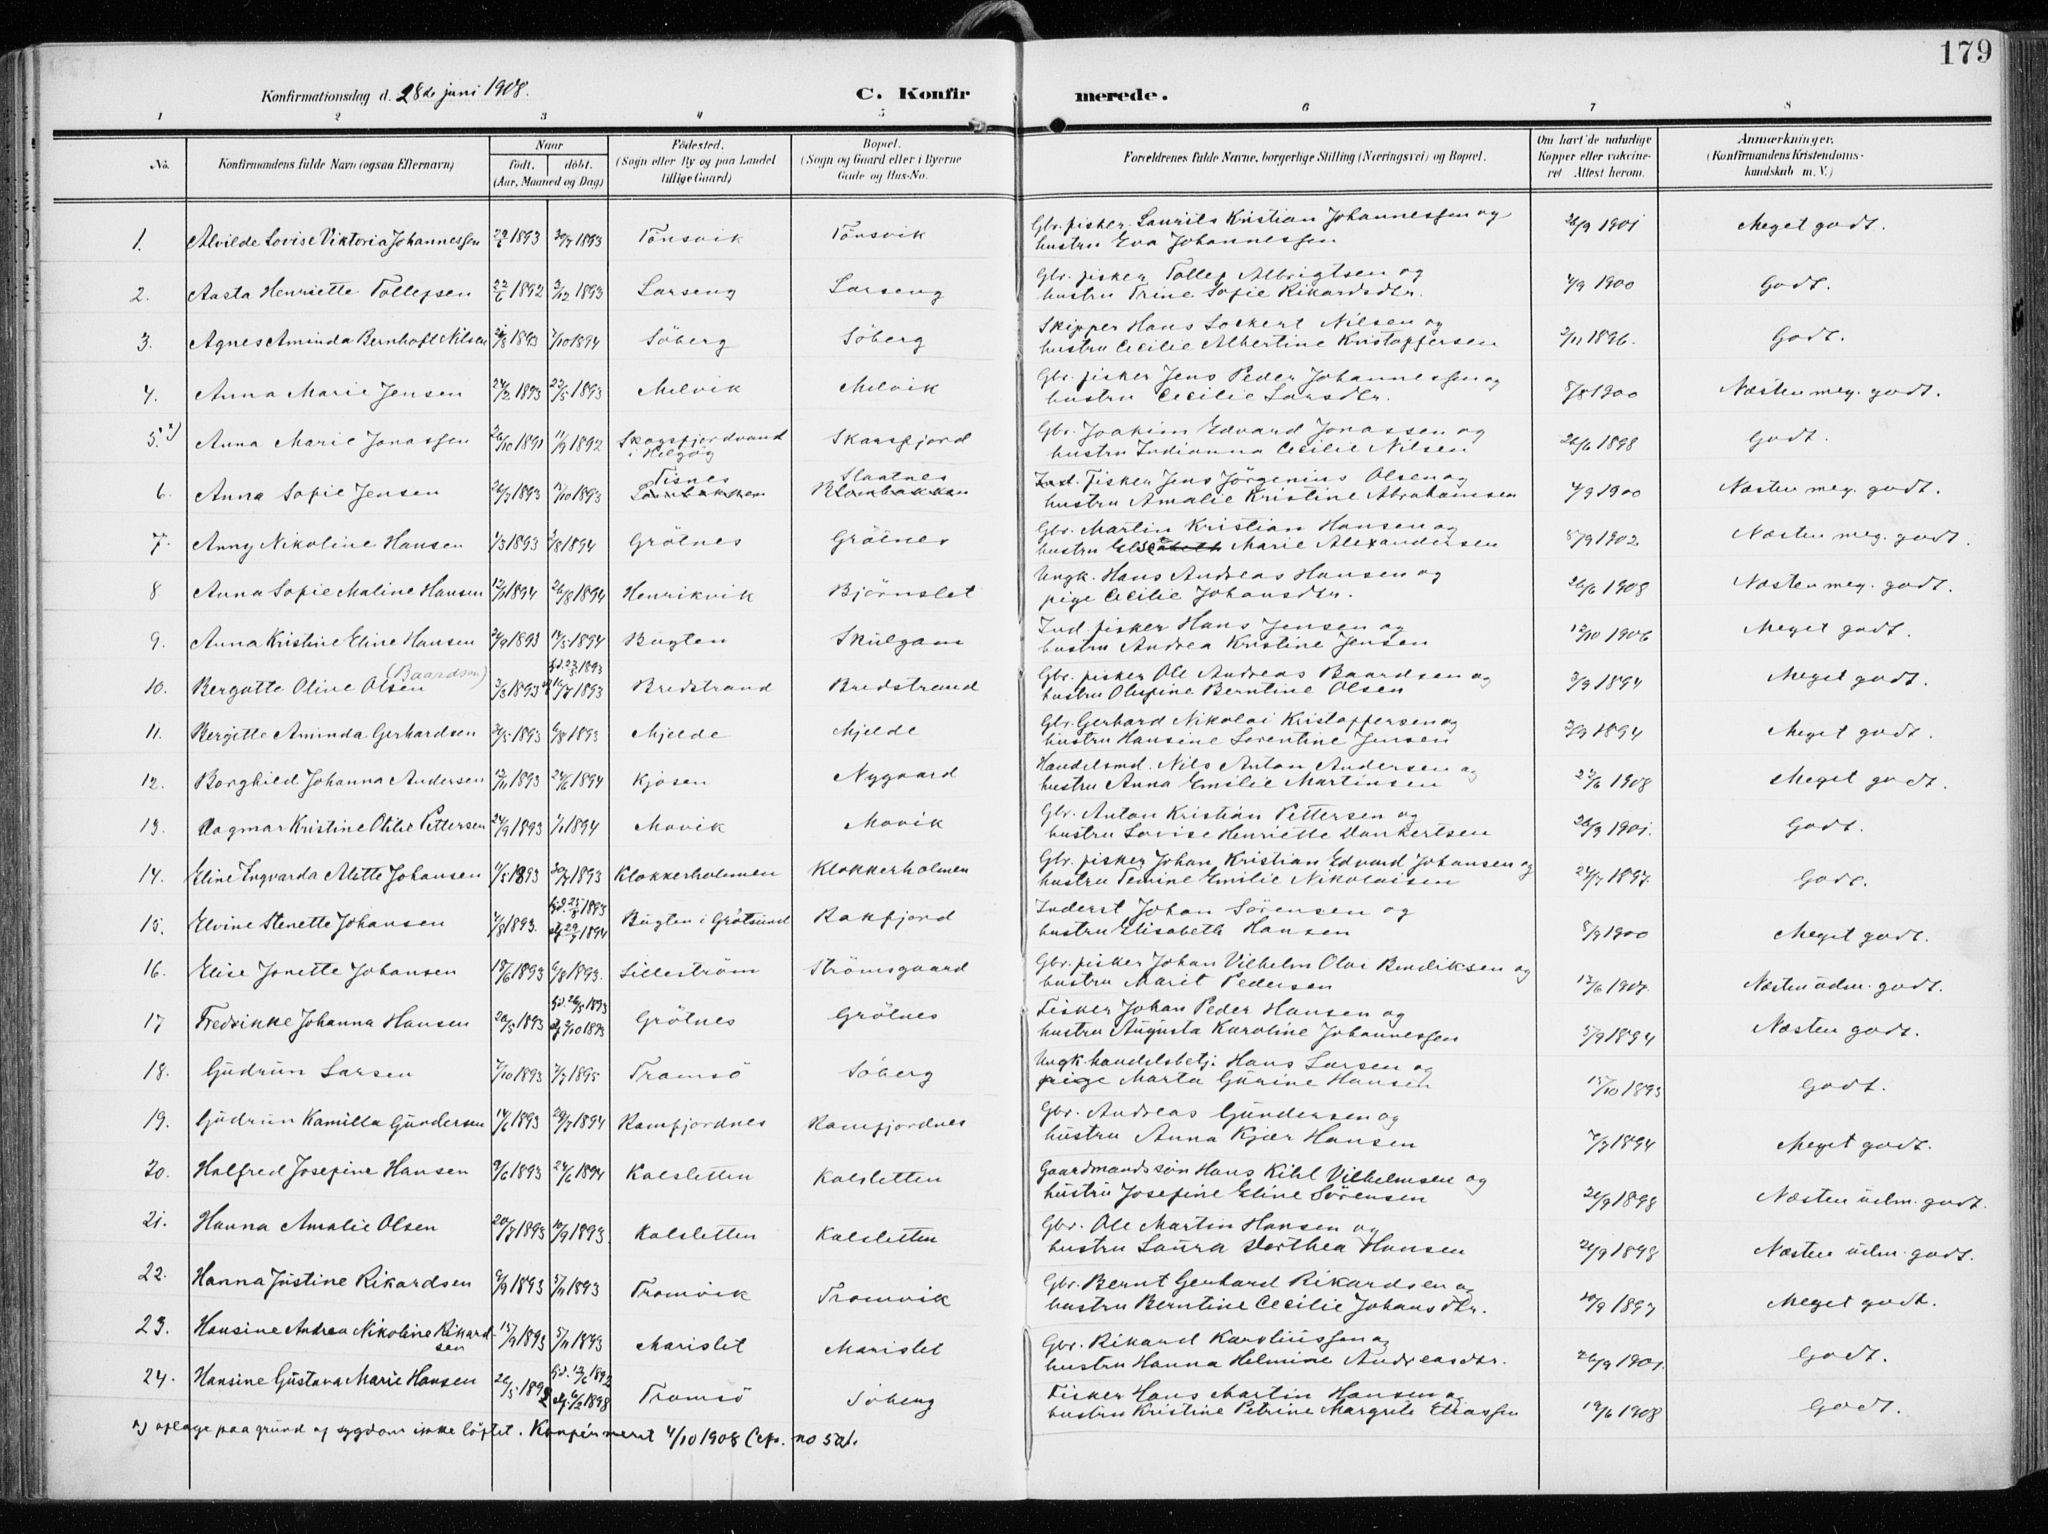 179
Konfirmationsdag d. 28de juni 1908.
C. Konfirmerede.
1 2 3 4 5 6 7 8
No. Konfirmandens fulde Navn (ogsaa Efternavn) Naar født. døbt. (Aar, Maaned og Dag) Fødested. (Sogn eller By og paa Landet tillige Gaard) Bopæl. (Sogn og Gaard eller i Byerne Gade og Hus-No. Forældrenes fulde Navne, borgerlige Stilling (Næringsvei) og Bopæl. Om havt de naturlige Kopper eller vakcineret. Attest herom. Anmærkninger. (Konfirmandens Kristendomskundskab m. V.)
1. Alvilde Lovise Viktoria Johannessen 1893 30/7 1893 Tönsvik Tönsvik Gbr. fisker Laurits Kristian Johannessen og
hustru Eva Johannessen 26/9 1901 Meget godt.
2. Aasta Henriette Tollefsen 22/6 1892 3/12 1893 Larseng Larseng Gbr. fisker Tollef Albrigtsen og
hustru Trine Sofie Rikardsdtr. 4/9 1900 Godt.
3. Agnes Aminda Bernhoft Nilsen 1893 7/10 1894 Söberg Söberg Skipper Hans Lockert Nilsen og
hustru Cecilie Albertine Kristoffersen 2/11 1896. Godt.
4. Anna Marie Jensen 24/2 1893 22/5 1893 Melvik Melvik Gbr. fisker Jens Peder Johannessen og
hustru Cecilie Larsdtr. 8/8 1900 Næsten meg. godt.
5. Anna Marie Jonassen 26/10 1891 11/9 1892 Skogsfjordvand i Helgøy Skarsfjord Gbr. Joakim Edvard Jonassen og
hustru Indianna Cecilie Nilsen 26/6 1898 Godt.
6. Anna Sofie Jensen 26/3 1893 1893 Tisnes Slaatnes Ind. Fisker Jens Jörgenius Olsen og
hustru Amalie Kristine Abrahamsen 4/9 1900 Næsten meg. godt.
7. Anny Nikoline Hansen 1/3 1893 1894 Grötnes Grötnes Gbr. Martin Kristian Hansen og
hustru Else Marie Alexandersen 5/9 1902 Næsten meg. godt.
8 Anna Sofie Maline Hansen 1894 26/8 1894 Henrikvik Björnslet Ungk. Hans Andreas Hansen og
pige Cecilie Johansdtr. 26/6 1908 Næsten meg. godt.
9. Anna Kristine Eline Hansen 2/9 1893 14/5 1894 Bugten Skulgam Ind. fisker Hans Jensen og
hustru Andrea Kristine Jensen 12/10 1906 Meget godt.
10. Bergutte Oline Olsen (Baardsen) 3/3 1893 hjd. 23/3 1893 16/7 1893 Bredstrand Bredstrand Gbr. fisker Ole Andreas Baardsen og
hustru Olufine Berntine Olsen 3/9 1894 Meget godt.
11. Bergitte Aminda Gerhardsen 21/5 1893 6/8 1893 Mjelde Mjelde Gbr. Gerhard Nikolai Kristoffersen og
hustru Hansine Lorentine Jensen 3/9 1894 Meget godt.
12. Borghild Johanna Andersen 12/11 1893 24/6 1894 Kjosen Nygaard Handelsmd. Nils Anton Andersen og
hustru Anna Emilie Martinsen 22/6 1908 Meget godt.
13. Dagmar Kristine Otilie Pettersen 24/9 1893 1/1 1894 Movik Movik Gbr. Anton Kristian Pettersen og
hustru Lovise Henriette Dankertsen 26/9 1901. Godt.
14. Eline Ingvarda Alette Johansen 11/5 1893 30/7 1893 Klokkerholmen Klokkerholmen Gbr. fisker Johan Kristian Edvard Johansen og
hustru Temine Emilie Nikolaisen 24/7 1897. Godt.
15. Elvine Stenette Johansen 1/8 1893. hjd. 1893 1894 Bugten i Grötsund Rakfjord Inderst Johan Sörensen og
hustru Elisabeth Hansen 8/9 1900 Meget godt.
16. Elise Jonette Johansen 18/6 1893 6/8 1893. Lilleström Strömsgaard Gbr. fisker Johan Vilhelm Olai Bendiksen og
hustru Marit Pedersen 17/6 1907. Næsten udm. godt.
17 Fredrikke Johanna Hansen 20/5 1893 hjd. 26/5 1893 1893 Grötnes Grötnes Fisker Johan Peder Hansen og
hustru Augusta Karoline Johannessen 5/9 1894 Næsten godt.
18. Gudrun Larsen 7/10 1893 7/7 1895 Tromsö Söberg Ungk. handelsbetj. Hans Larsen og
pige Marta Gurine Hansen 15/10 1893 Godt.
19. Gudrun Kamilla Gundersen 14/6 1893 29/7 1894 Ramfjordnes Ramfjordnes Gbr. Andreas Gundersen og
hustru Anna Kjær Hansen 7/7 1894 Meget godt.
20. Halfred Josefine Hansen 9/6 1893 24/6 1894 Kalsletten Kalsletten Gaardmandssön Hans Kihl Vilhelmsen og
hustru Josefine Eline Sörensen 26/9 1898 Næsten udm. godt.
21. Hanna Amalie Olsen 20/7 1893 10/9 1893 Kalsletten Kalsletten Gbr. Ole Martin Hansen og
hustru Laura Dorthea Hansen 26/9 1898 Næsten udm. godt.
22. Hanna Justine Rikardsen 9/9 1893 5/11 1893 Tromvik Tromvik Gbr. Bernt Gerhard Rikardsen og
hustru Berntine Cecilie Johansdtr. 20/9 1897 Meget godt.
23. Hansine Andrea Nikoline Rikardsen 15/9 1893 5/11 1893 Marislet Marislet Gbr. Rikard Karoliussen og
hustru Hanna Helmine Andreasdtr. 26/9 1901. Godt.
24. Hansine Gustava Marie Hansen 26/5 1892 hjd. 12/6 1892 6/2 1898 Tromsö Söberg Fisker Hans Martin Hansen og
hustru Kristine Petrine Margrete Eliassen 19/6 1908 Godt.
x) aflagt paa grund af sygdom ikke löftet. Konfirmeret 4/10 1908 no 50